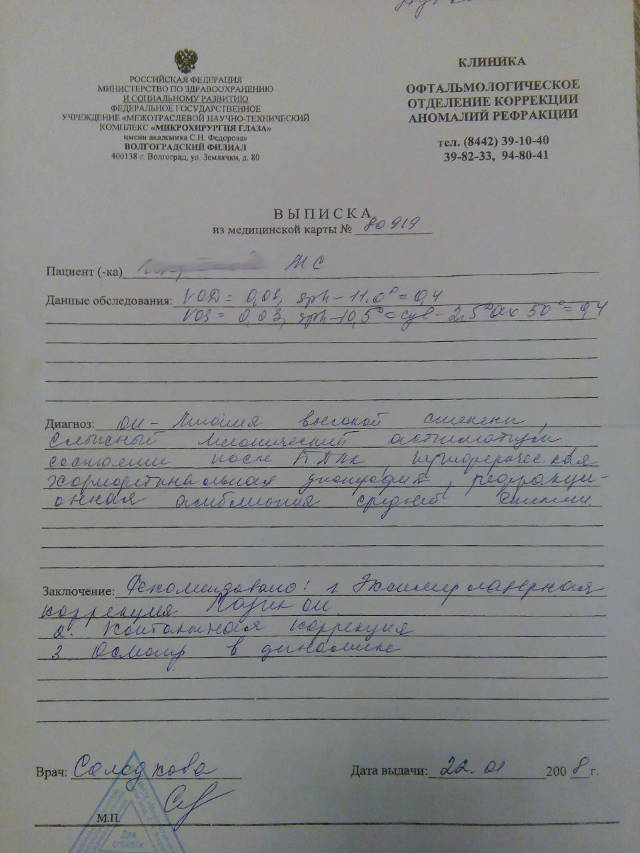 РОССИЙСКАЯ ФЕДЕРАЦИЯ
МИНИСТЕРСТВО ПО ЗДРАВООХРАНЕНИЮ
И СОЦИАЛЬНОМУ РАЗВИТИЮ
ФЕДЕРАЛЬНОЕ ГОСУДАРСТВЕННОЕ
УЧРЕЖДЕНИЕ «МЕЖОТРАСЛЕВОЙ НАУЧНО-ТЕХНИЧЕСКИЙ
КОМПЛЕКС «МИКРОХИРУРГИЯ ГЛАЗА»
имени академика С.Н. Федорова»
ВОЛГОГРАДСКИЙ ФИЛИАЛ
400138 г. Волгоград, ул. Землячки, д. 80
КЛИНИКА
ОФТАЛЬМОЛОГИЧЕСКОЕ
ОТДЕЛЕНИЕ КОРРЕКЦИИ
АНОМАЛИЙ РЕФРАКЦИИ
тел. (8442) 39-10-40
39-82-33, 94-80-41
ВЫПИСКА
из медицинской карты № 80919
Пациент (-ка) МС
Данные обследования: VOD = sph - 11.0 D = 0,4
VOS = 0,03, sph - 10,5 D = cyl - 2,5 D ax 50° = 0,4
Диагноз: ОИ - Миопия высокой степени,
сложный миопический астигматизм
состояние после ППЛК, периферическая
хориоретинальная дистрофия, рефракци-
онная амблиопия средней степени.
Заключение: Рекомендовано: 1. Эксимерлазерная
коррекция ОИ
2. Контактная коррекция
3 Осмотр в динамике
Врач: Солодкова
Дата выдачи: 22.01 2008 г.
М.П.
Для
справок